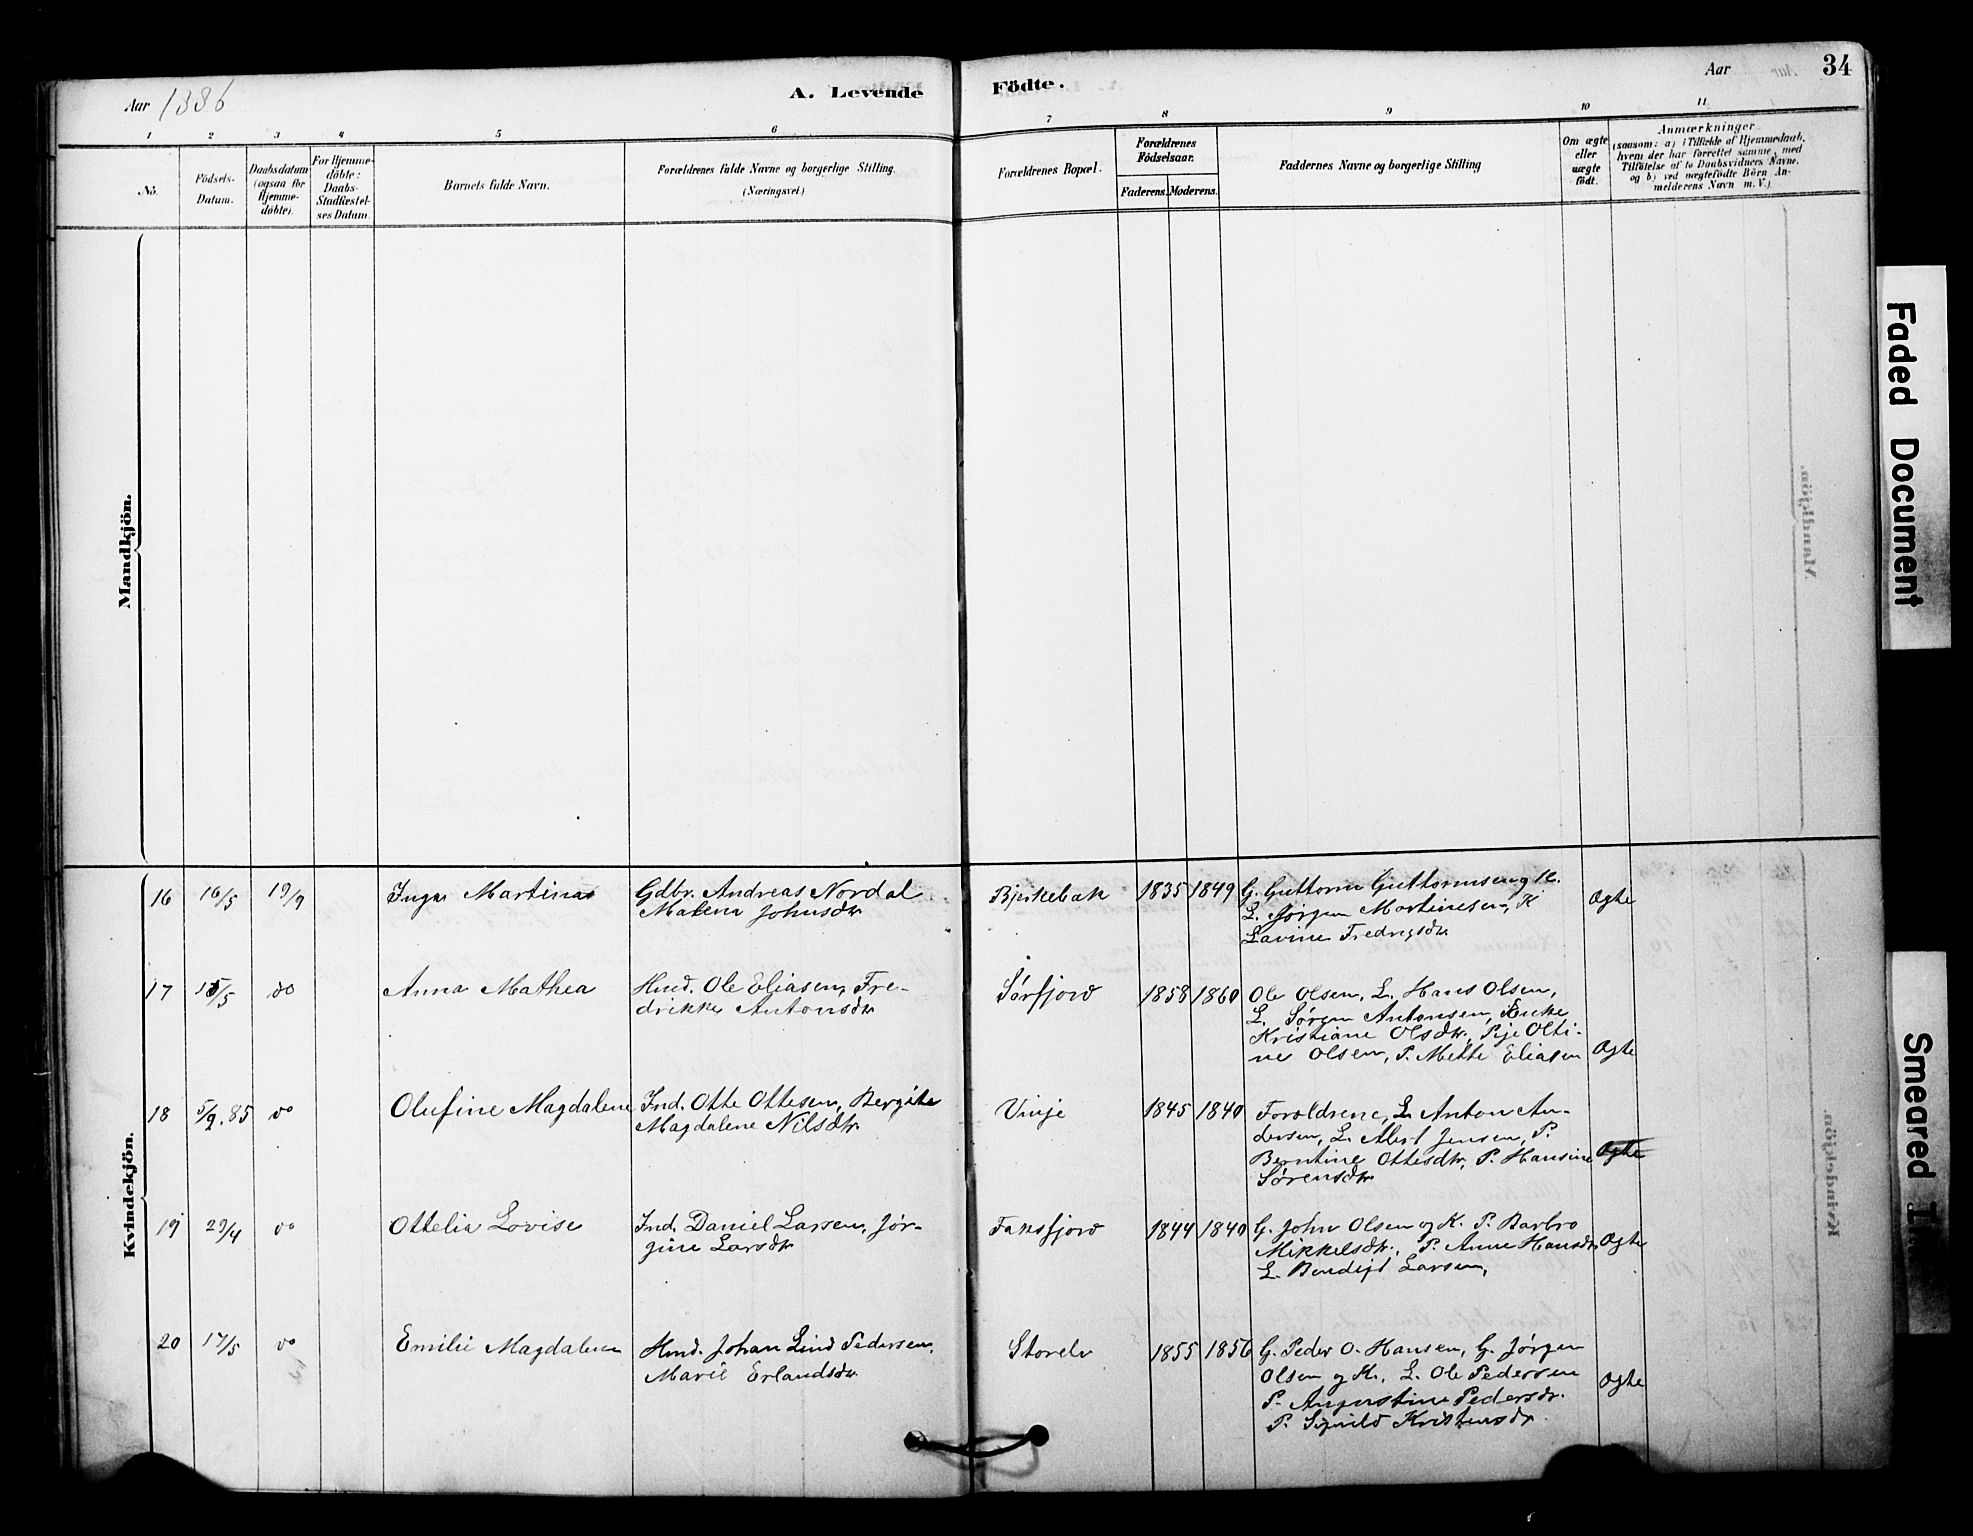 Aar 1886
A. Levende Födte.
Aar
34
1 2 3 4 5 6 7 8 9 10 11
No.
Födsels-
Datum.
Daabsdatum
(ogsaa for
Hjemme-
döbte).
For Hjemme-
döbte:
Daabs-
Stadfæstel-
ses Datum.
Barnets fulde Navn.
Forældrenes fulde Navne og borgerlige Stilling.
(Næringsvei.)
Forældrenes Bopæl.
Forældrenes
Födselsaar.
Faderens. Moderens.
Faddernes Navne og borgerlige Stilling
Om ægte
eller
uægte
født.
Anmærkninger
(saasom: a) i Tilfælde af Hjemmedaab,
hvem der har forrettet samme, med
Tilföielse af to Daabsvidners Navne.
og b) ved uægtefödte Börn An-
melderens Navn m. V.)
Mandkjön.
Kvindekjön.
16 16/5 19/9 Inga Martina
Gdbr. Andreas Nordal
Malena Johnsdtr
Bjerkebak 1835 1849
G. Guttorm Guttormsen og K.
L. Jørgen Martinesen, K
Lavine Fredrigsdtr
Ægte
17 15/5 do Anna Mathea
Hmd. Ole Eliasen, Fre-
drikke Antonsdtr
Sørfjord 1858 1860
Ole Olsen, L. Hans Olsen,
L. Søren Antonsen, Enke
Kristiane Olsdtr, Pige Olti-
ne Olsen, P. Mette Eliasen
Ægte
18 5/2.85 do Olufine Magdalene
Ind. Otte Ottesen, Bergite
Magdalene Nilsdtr
Vinje 1845 1840
Forældrene, L. Anton An-
dersen, L. Albert Jensen, P.
Berntine Ottesdtr, P. Hansine
Sørensdtr
Ægte
19 29/4 do Ottelia Lovise
Ind. Daniel Larsen, Jør-
gine Larsdtr
Faksfjord 1844 1840
G. John Olsen og K. P. Barbro
Mikkelsdtr, P. Anne Hansdtr
L. Bendigt Larsen,
Ægte
20 17/5 do Emilie Magdalena
Hmd. Johan Lind Pedersen,
Marie Erlandsdtr
Storelv 1855 1856
G. Peder O. Hansen, G. Jørgen
Olsen og K., L. Ole Pedersen
P. Augustine Pedersdtr.
P. Signild Kristensdtr.
Ægte
Faded Document
Smeared